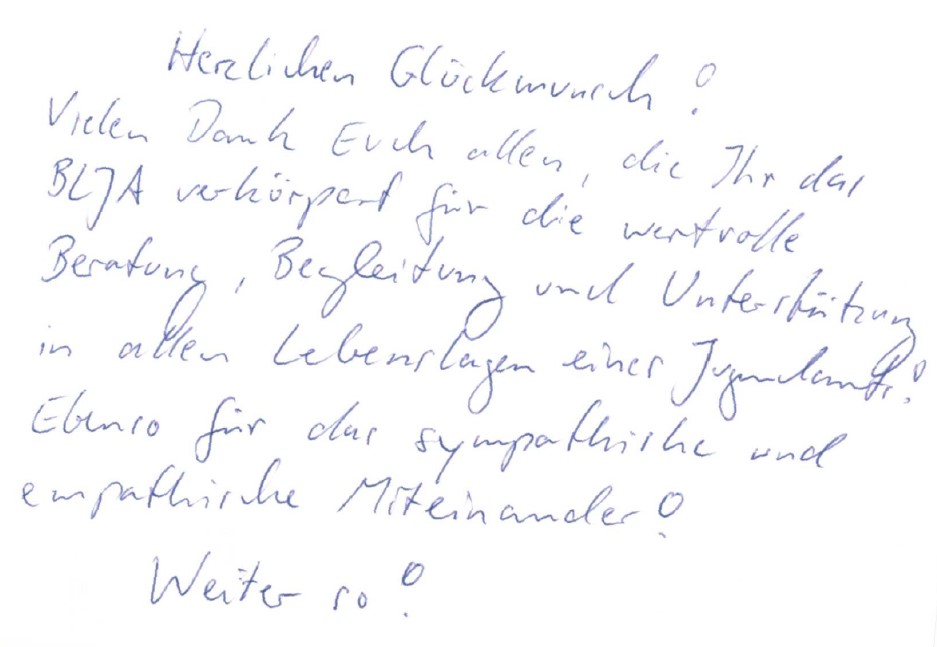 Herzlichen Glückwunsch!
Vielen Dank Euch allen, die Ihr das
BLJA verkörpert für die wertvolle
Beratung, Begleitung und Unterstützung
in allen Lebenslagen eines Jugendamts!
Ebenso für das sympathische und
empathische Miteinander!
Weiter so!